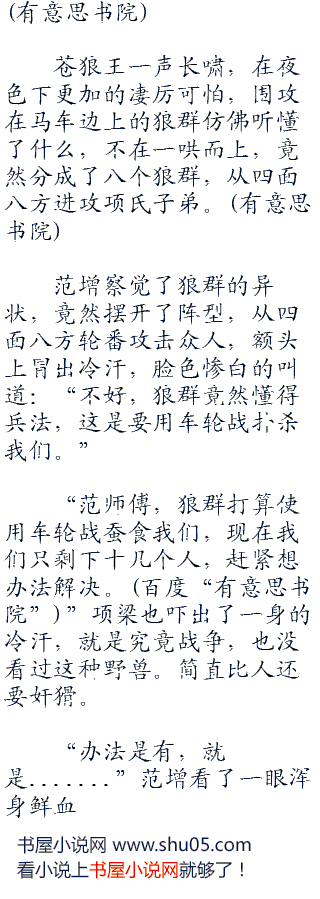 (有意思书院)
苍狼王一声长啸，在夜
色下更加的凄厉可怕，围攻
在马车边上的狼群仿佛听懂
了什么，不在一哄而上，竟
然分成了八个狼群，从四面
八方进攻项氏子弟。(有意思
书院)
范增察觉了狼群的异
状，竟然摆开了阵型，从四
面八方轮番攻击众人，额头
上冒出冷汗，脸色惨白的叫
道：“不好，狼群竟然懂得
兵法，这是要用车轮战扑杀
我们。”
“范师傅，狼群打算使
用车轮战蚕食我们，现在我
们只剩下十几个人，赶紧想
办法解决。(百度“有意思书
院”)”项梁也吓出了一身的
冷汗，就是究竟战争，也没
看过这种野兽。简直比人还
要奸猾。
“办法是有，就
是.......”范增看了一眼浑
身鲜血
书屋小说网 www.shu05.com
看小说上书屋小说网就够了！